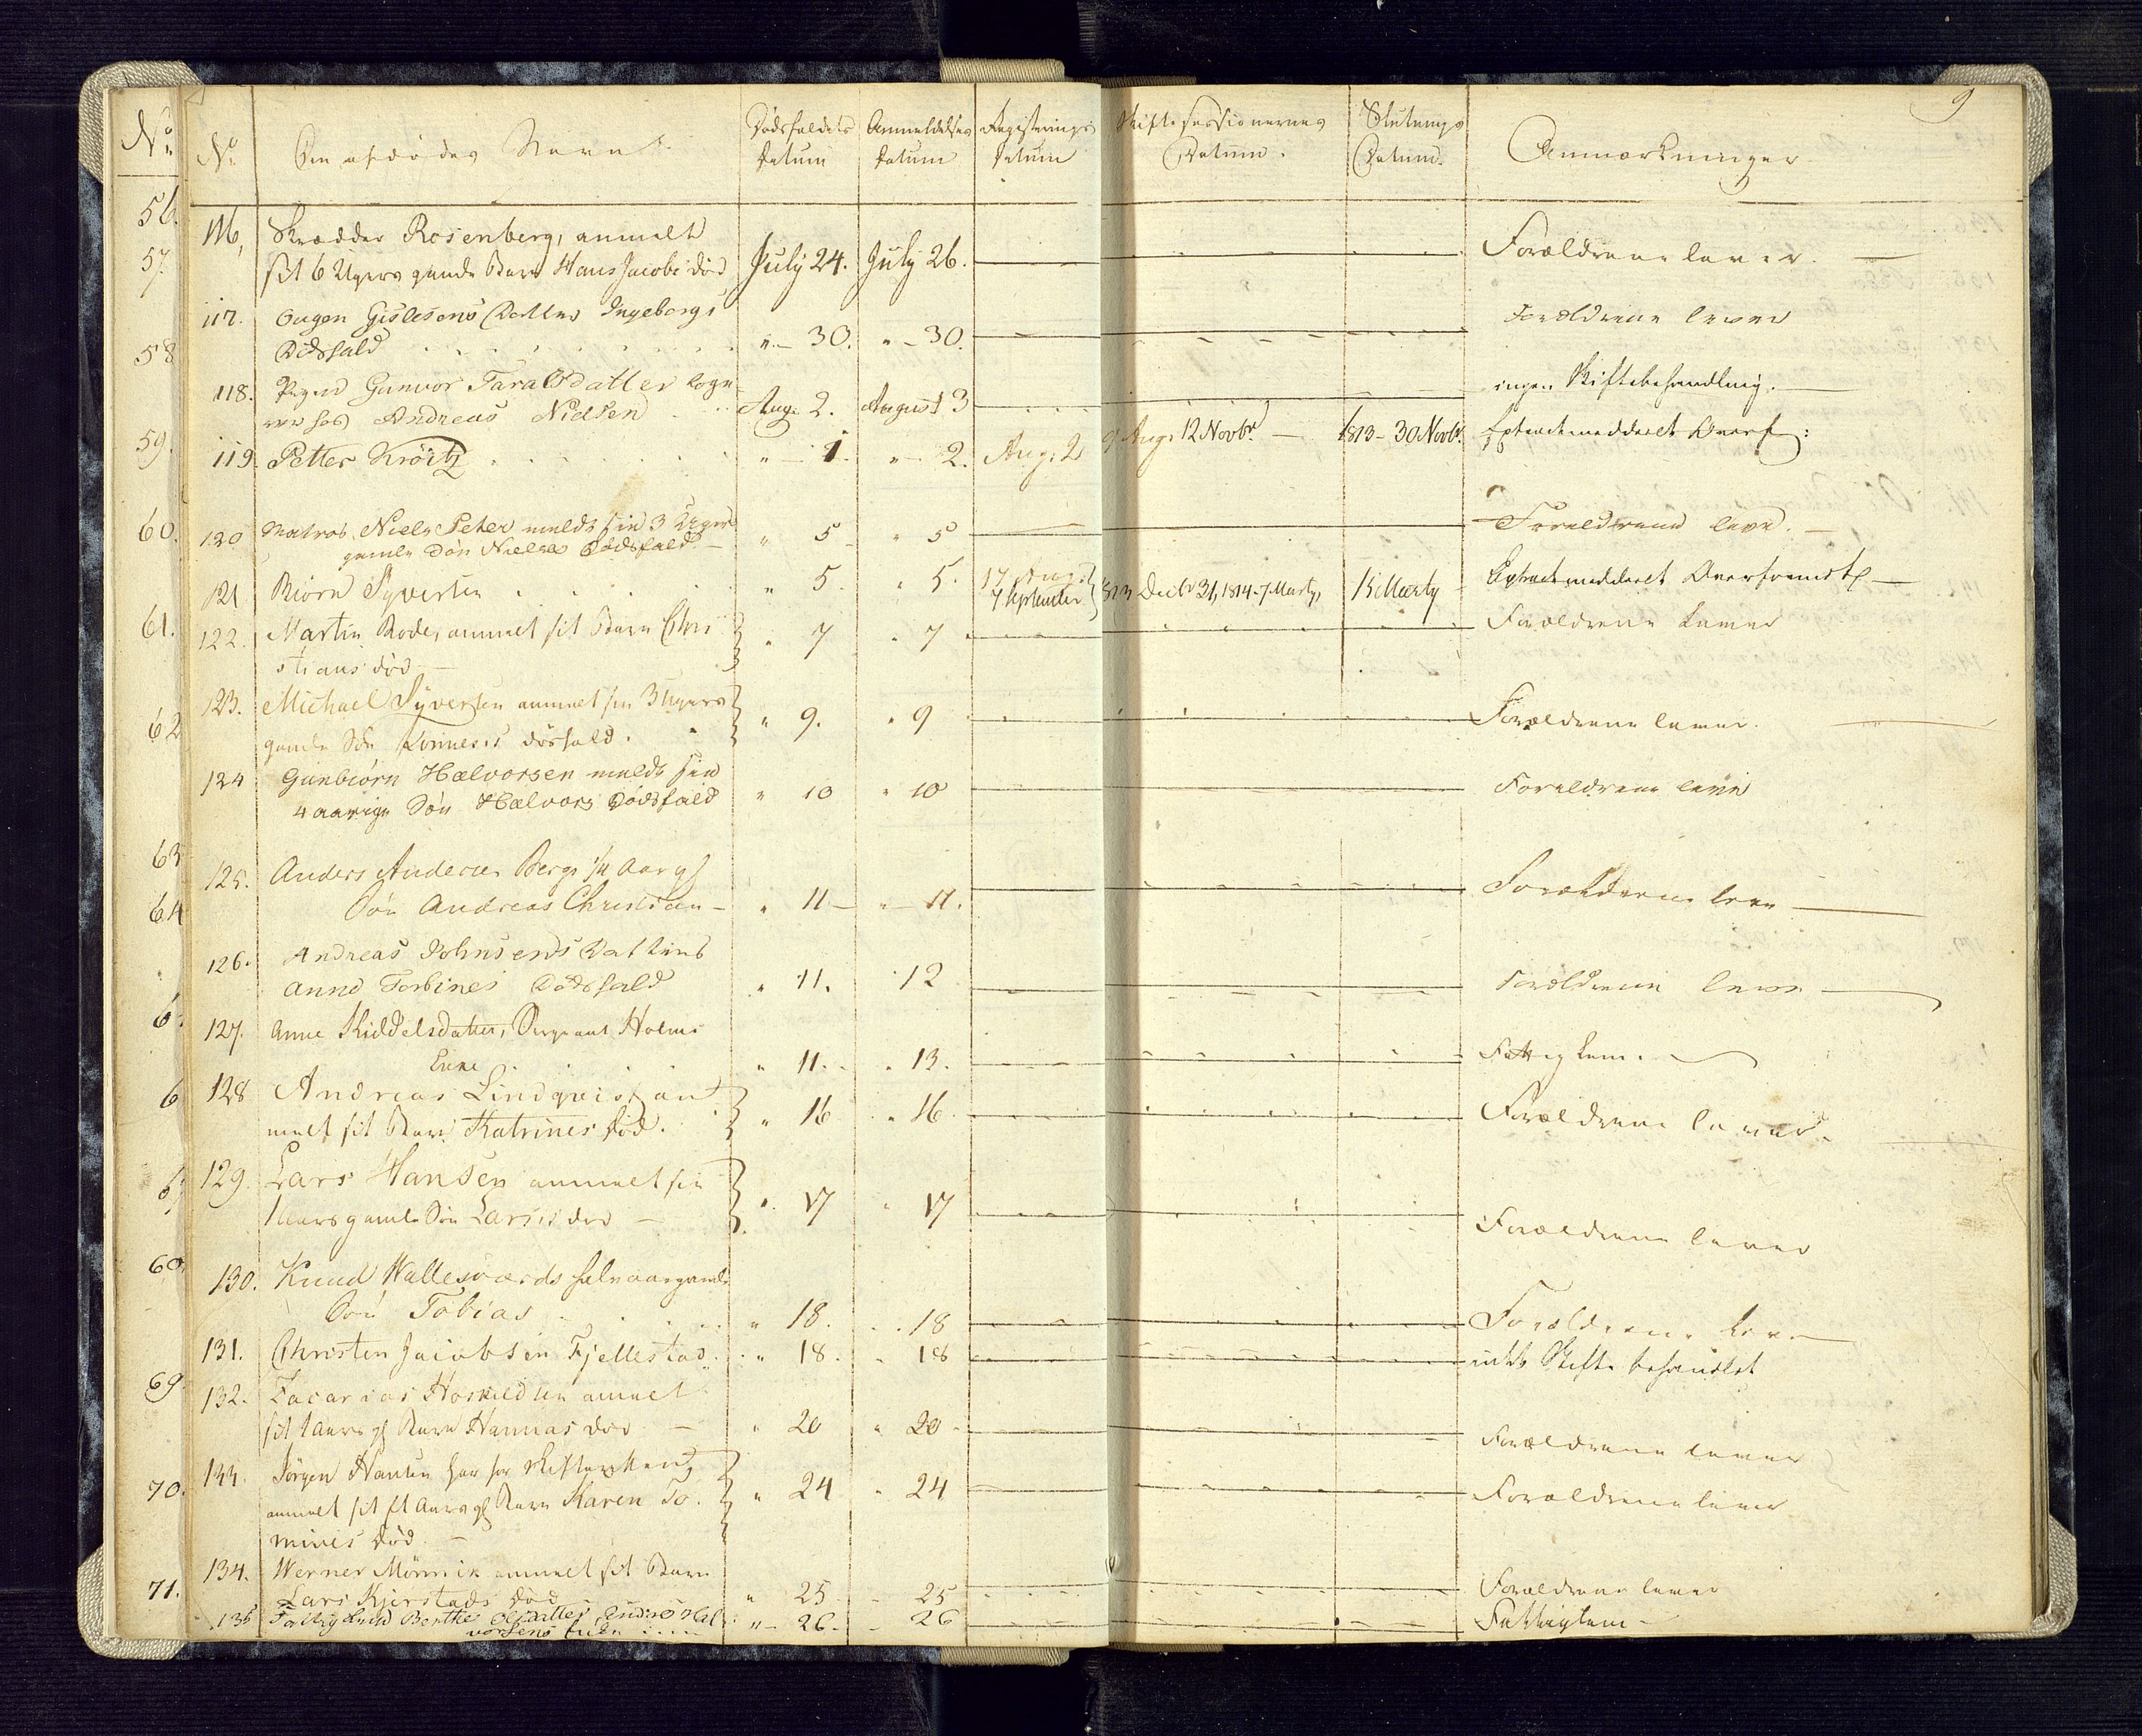 9
No
No
Den afdödes Navn
Dödsfaldets Datum
Anmeldelses Datum
Registrerings Datum
Skiftesessionernes Datum.
Slutnings Datum.
Anmærkninger
56.
57.
58
59.
60.
61.
62
63
64
6
6
67
69.
70.
71.
116, Skrædder Rosenberg, anmelt
sit 6 Ugers gamle Barn Hans Jacobs död July 24. July 26. Forældrene lever.
117. Ougen Gislesens Datter Ingeborgs
Dödsfald " 30. " 30. Forældrene lever
118. Pigen Gunvor Taralsdatter loge-
rer hos Andreas Nielsen Aug. 2. August 3 ingen Skiftebehandling.
119. Petter Kröitz " 1. " 2. Aug. 2 9 Aug. 12 Novbr. 1813 - 30 Novbr. Extract meddeelt Overf:
120 Matros Niels Peter melds sin 3 Uger
gamle Sön Nielses Dödsfald " 5 " 5 Foreldrene leve.
121 Biörn Syversen " 5. " 5. 17 Aug. 7 September 1813 Decbr 31, 1814 - 7 Marty, 15 Marty Extract meddeelt
122. Martin Bode, anmelt sit Barn Chri-
stians död " 7 " 7 Forældrene Lever
123. Michael Syversen anmelt sin 3 Ugers
gamle Sön dösfald. " 9. " 9 Forældrene lever.
124 Gunbiörn Halvorsen melds sin
4 aarige Sön Halvors Dödsfald " 10 " 10 Foreldrene leve
125. Anders Andersen Bergs 1/4 Aar gl
Sön Andreas Christian " 11 " 11. Forældrene leve
126. Andreas Johnsens Datters
Anne Torbines Dödsfald " 11. " 12 Forældrene leve
127. Anne Kiddelsdatter, Sergeant Holms
Enke " 11. " 13. Fattig Lem.
128 Andreas Lindqvist an-
melt sit Barn Katrines död. " 16 " 16. Forældrene lever.
129. Lars Hansen anmelt sin
1 Aars gamle Sön Larses död " 17 " 17 Forældrene lever
130. Knud Wallesværds halvaargamle
Sön Tobias " 18. " 18 Forældrene leve
131. Christen Jacobsen Fjellestad " 18. " 18 intet Skifte behandlet
132. Zacarias anmelt
sit 1 Aars gl Barn Hannas död " 20 " 20 Forældrene lever
133. Jörgen Hansen har for Skifteretten
anmelt sit Aars gl Barn Karen To-
mines död. " 24 " 24 Forældrene lever
134. Werner Mönnik anmelt sit Barn
Lars Kjerstads död " 25 " 25 Forældrene lever
135 Fattig Lem Berthe Olsdatter, Andres Hal-
vorsens Enke " 26. " 26 Fattiglem